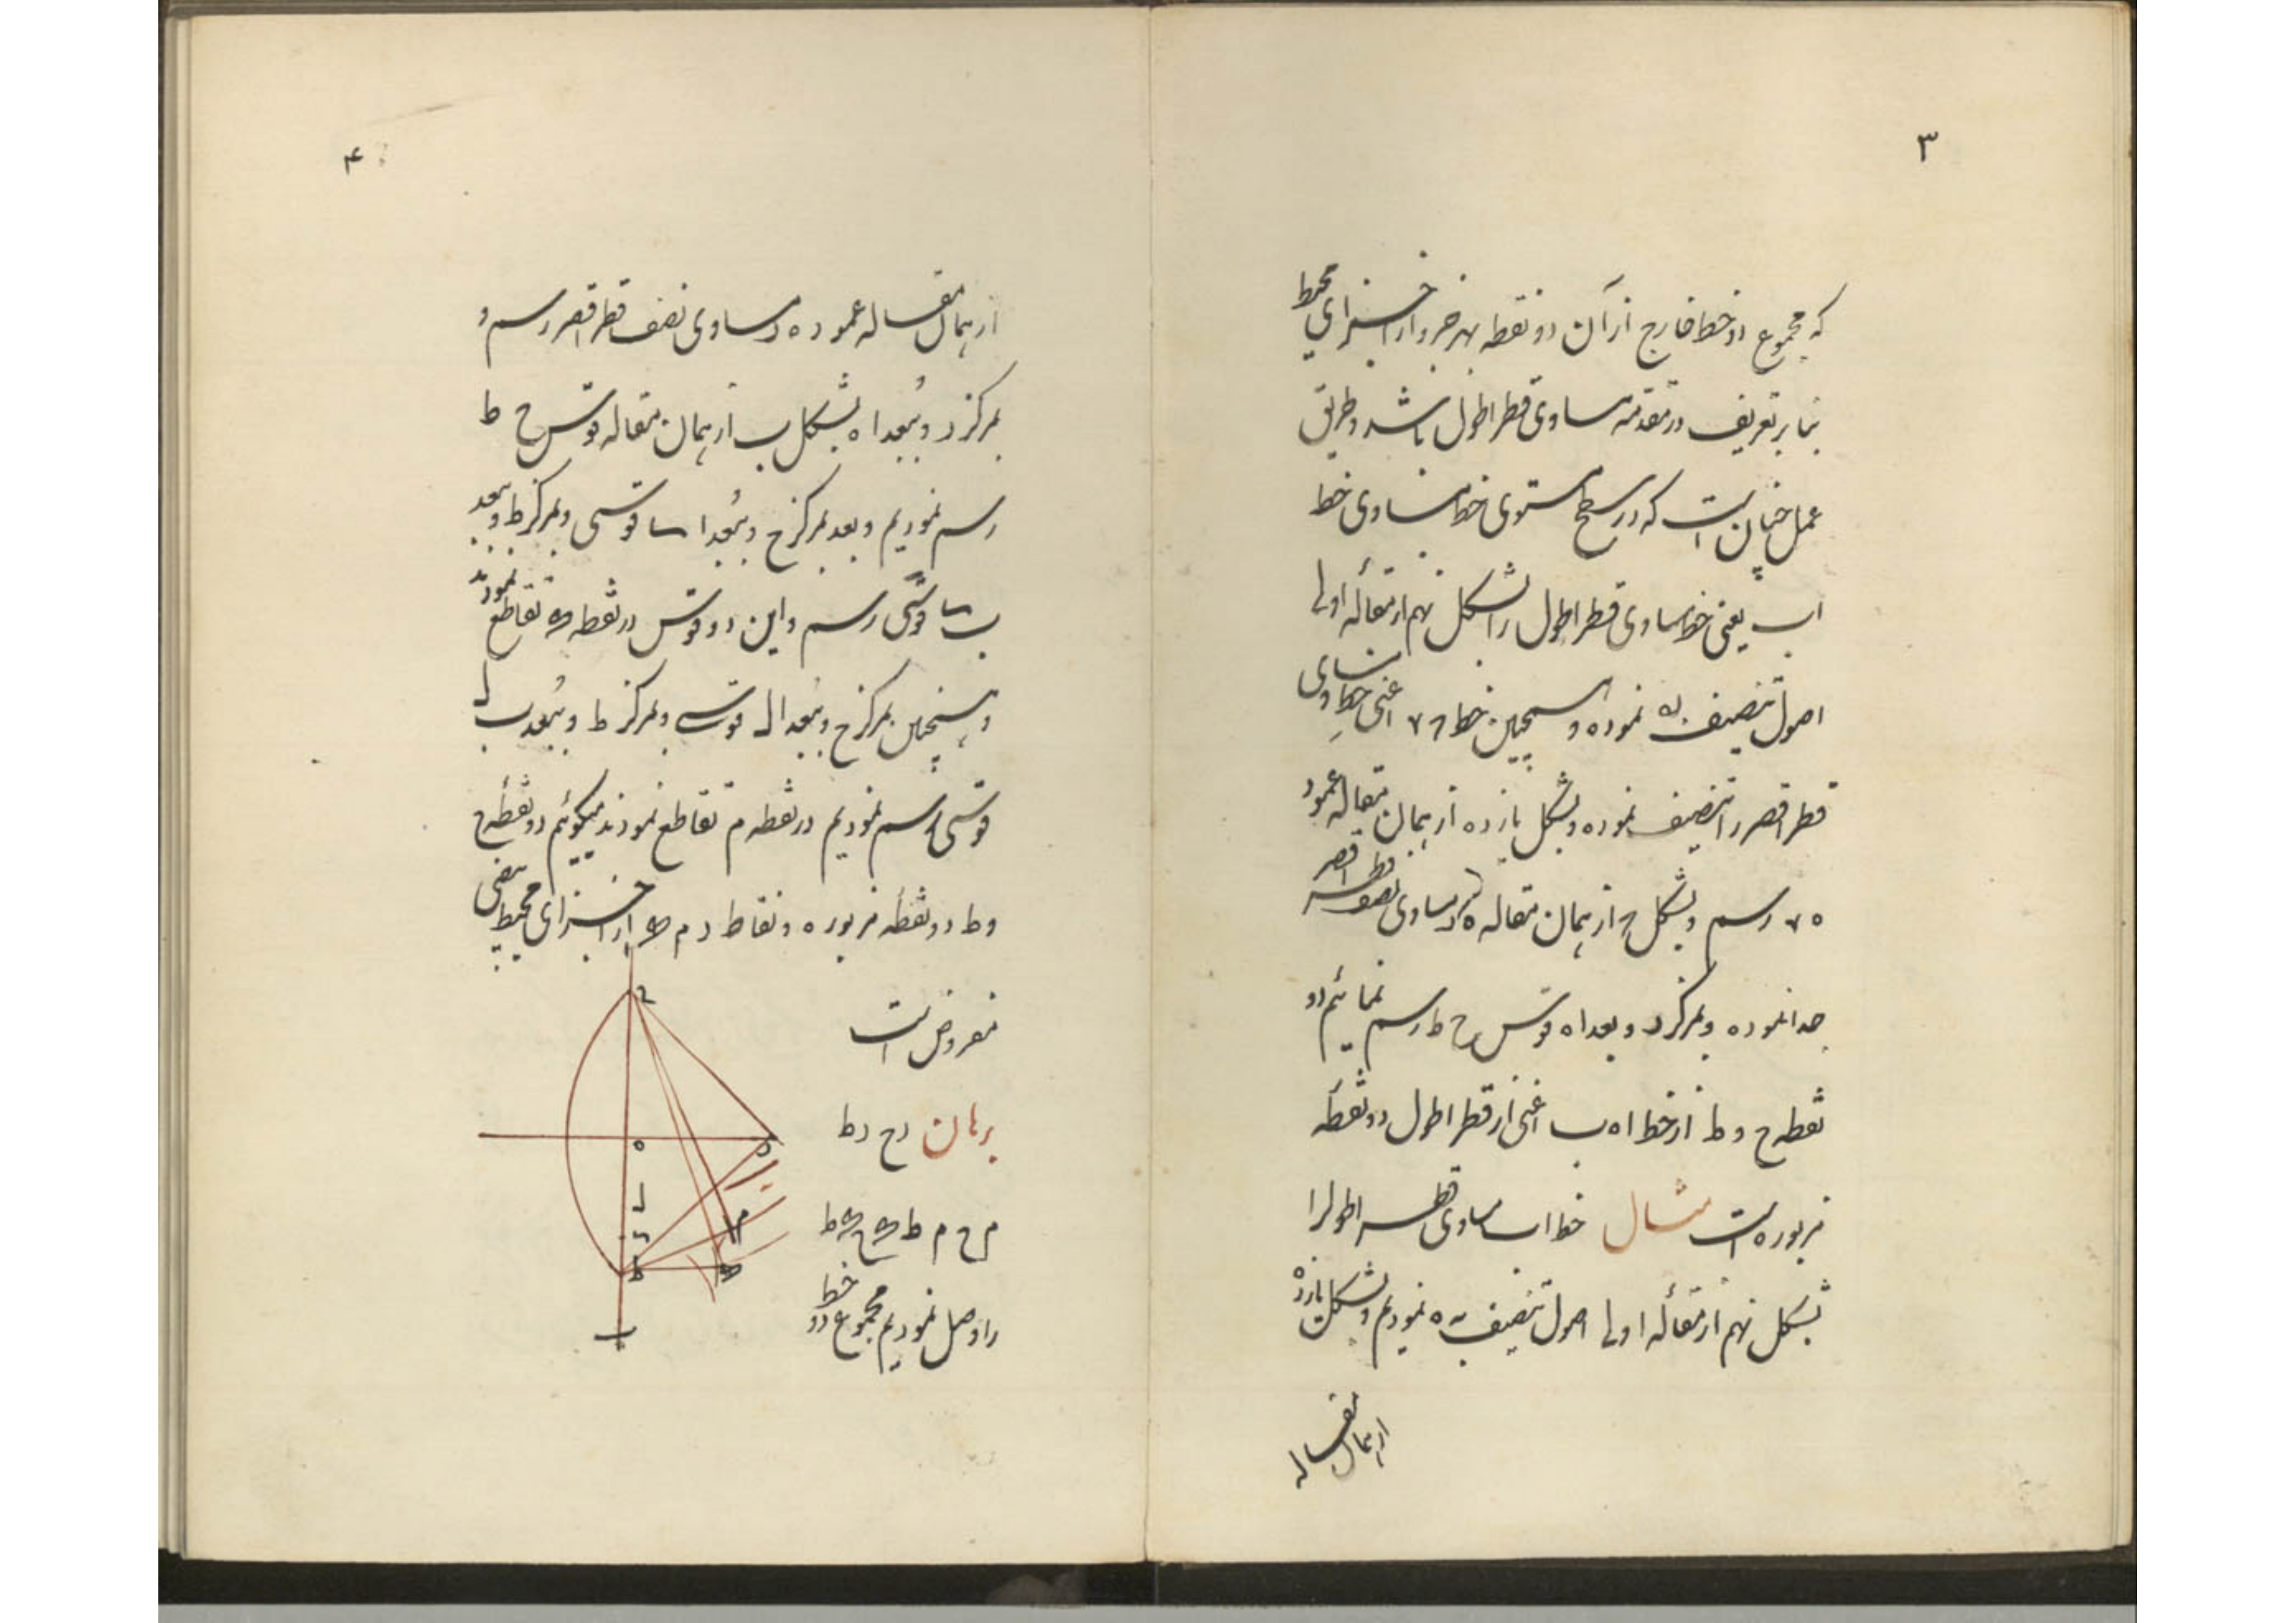 ۳
که مجموع دو خط خارج از آن دو نقطه بهر جزو از اجزای محیط
بنا بر تعریف در مقدمه مساوی قطر اطول باشد و طریق
عمل چنان است که در سطح مستوی خط مساوی خط
اب یعنی خط مساوی قطر اطول را بشکل نهم از مقاله اولی
اصول تنصیف به ه نموده و همچنین خط اعنی خط مساوی
قطر اقصر را تنصیف نموده و بشکل یازده از همان مقاله عمود
رسم و بشکل ج از همان مقاله ه د مساوی نصف قطر اقصر
جدا نموده و بمرکز د و ببعد ا ه قوس ح ط رسم نمائیم دو
نقطه ح و ط از خط ا ه ب اعنی از قطر اطول دو نقطه
مزبوره است مثال خط اب مساوی قطر اطول را
بشکل نهم از مقاله اولی اصول تنصیف به ه نمودیم و بشکل یازده
از همان مقاله
۴
از همان مقاله عمود ه د مساوی نصف قطر اقصر رسم و
بمرکز د و ببعد ا ه بشکل ب از همان مقاله قوس ح ط
رسم نمودیم و بعد بمرکز ح و ببعد ا قوسی و بمرکز ط و ببعد
ب قوسی رسم و این دو قوس در نقطه تقاطع نمودند
و همچنین بمرکز ح و ببعد ا ل قوسی و بمرکز ط و ببعد ب ل
قوسی رسم نمودیم در نقطه م تقاطع نمودند میگوئیم دو نقطه ح
و ط دو نقطه مزبوره و نقاط د م از اجزای محیط بیضی
مفروض است
برهان د ح د ط
م ح م ط
را وصل نمودیم مجموع دو خط
ح
د
ه
ل
م
ط
ب